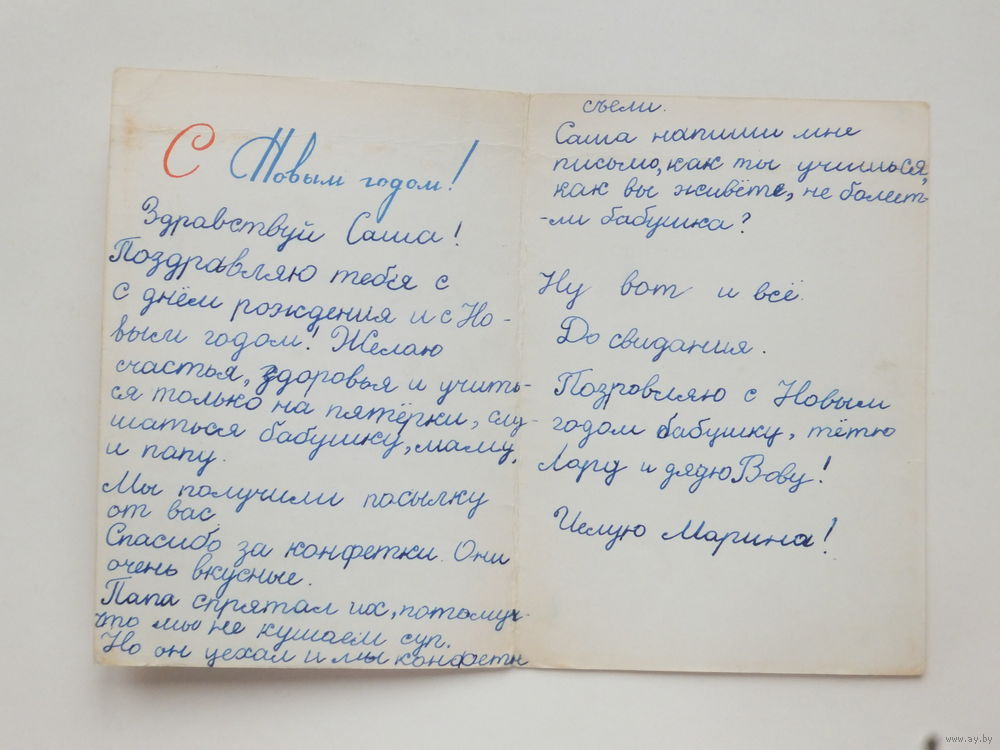 С Новым годом!
Здравствуй Саша!
Поздравляю тебя с
с днём рождения и с Но-
вым годом! Желаю
счастья, здоровья и учить-
ся только на пятёрки, слу-
шаться бабушку, маму,
и папу.
Мы получили посылку
от вас
Спасибо за конфетки. Они
очень вкусные.
Папа спрятал их, потому ч-
то мы не кушаем суп.
Но он уехал и мы конфеты
съели.
Саша напиши мне
письмо, как ты учишься,
как вы живёте, не болеет-
-ли бабушка?
Ну вот и всё.
До свидания.
Позровляю с Новым
годом бабушку, тётю
и дядю Вову!
Целую Марина!
www.ay.by